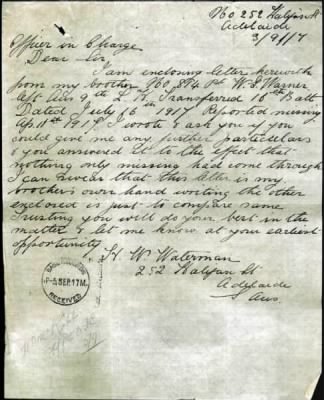 No 252 Halifax St
Adelaide
3/9/17
Officer in Charge
Dear Sir,
I am enclosing letter herewith
from my brother No 894 Pt W. G. Warner
left Aus 9th L. H. Transferred 16th Batt
Dated July 16 in 1917 Reported missing
Ap. 11st 1917. I wrote & ask you if you
could give me any further particulars
& you answered it to the effect that
nothing only missing had come through
I can swear that this letter is my
brothers own hand writing the other
enclosed is just to compare same
Trusting you will do your best in the
matter & let me know at your earliest
opportunity
H. W. Waterman
252 Halifax St
Adelaide
Aus.
5 SEP. 17 M.
RECEIVED